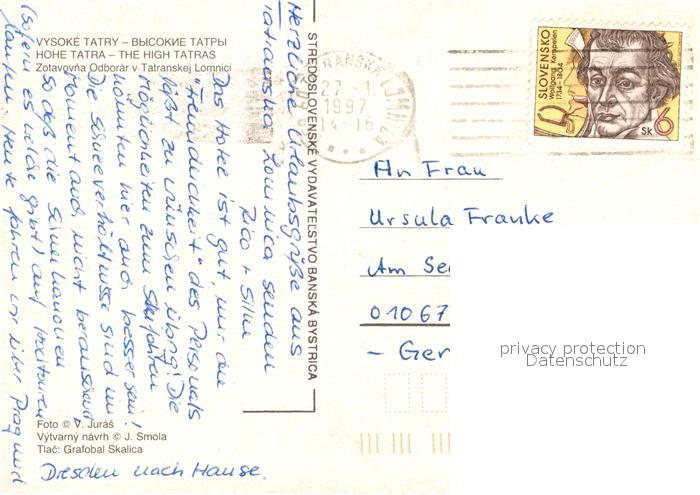 VYSOKÉ TATRY – ВЫСОКИЕ ТАТРЫ
HOHE TATRA – THE HIGH TATRAS
Zotavovňa Odborár v Tatranskej Lomnici
Herzliche Urlaubsgrüße aus
Tatranska Lomnica senden
Rico + Silke
Das Hotel ist gut, nur die
"Freundlichkeit" des Personals
läßt zu wünschen übrig! Die
Möglichkeiten zum Skifahren
könnten hier auch besser sein!
Die Schneeverhältnisse sind im
Moment auch nicht berauschend
so daß die Seilbahnen
(sofern es welche gibt) auf
laufen. Heute fahren wir über Prag und
Dresden nach Hause.
Foto © V. Juráš
Výtvarný návrh © J. Smola
Tlač: Grafobal Skalica
STREDOSLOVENSKÉ VYDAVATEĽSTVO BANSKÁ BYSTRICA
27. 1.
1997
14-15
SLOVENSKO
Wolfgang Kempelen
1734 - 1804
Sk 6
An Frau
Ursula Franke
Am
01067
- Ger
privacy protection
Datenschutz